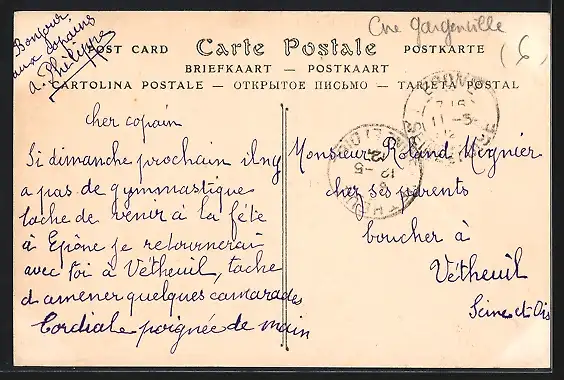 Bonjour
aux copains
a. Philippe
Cne Gargenville
(6)
POST CARD Carte Postale POSTKARTE
BRIEFKAART — POSTKAART
CARTOLINA POSTALE - ОТКРЫТОЕ ПИСЬМО - TARJETA POSTAL
cher copain
Si dimanche prochain il ny
a pas de gymmastique
tache de venir à la fête
à Epône je retournerai
avec toi à Vétheuil, tache
d amener quelques camarades
Cordiale poignée de main
Monsieur Roland Mignier
chez ses parents
boucher à
Vétheuil
Seine et Oise
EPONE
11 -5
12